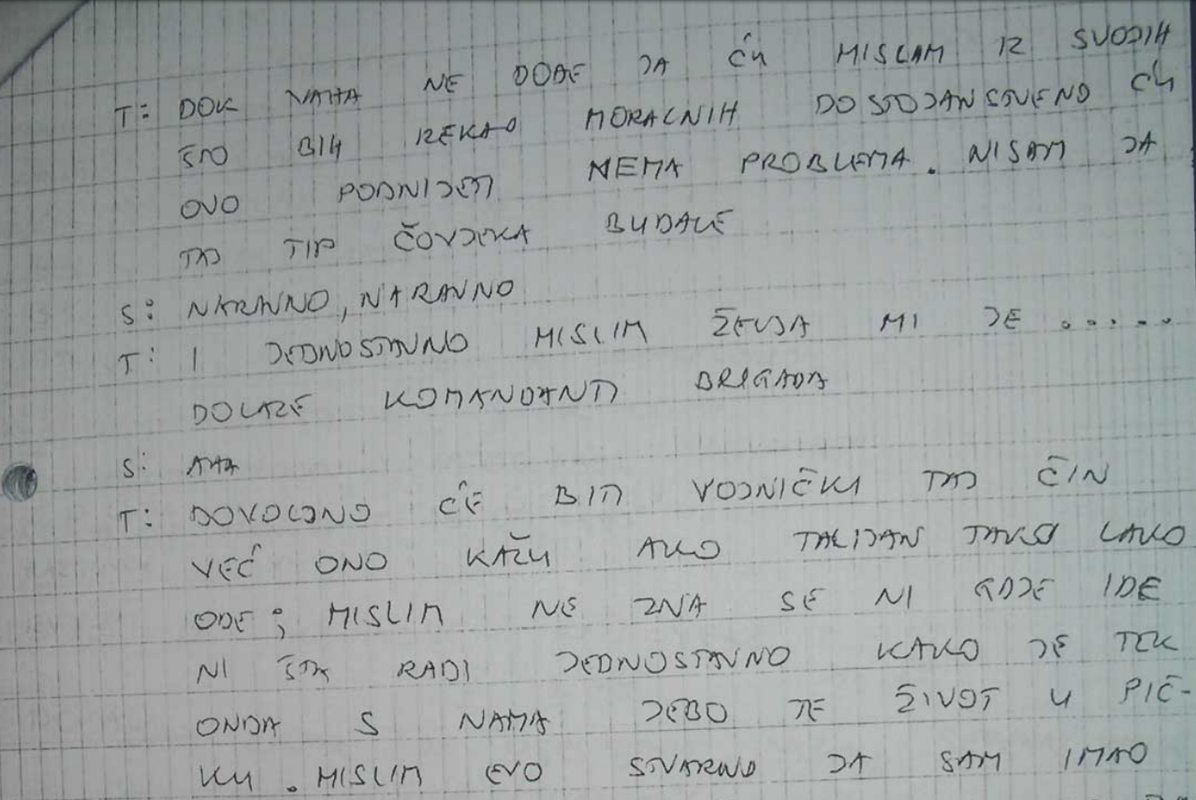 T: DOK NAMA NE DOĐE JA ĆU MISLAM IZ SVOJIH
ŠTO BIH REKAO MORALNIH DOSTOJANSTVENO ĆU
OVO PODNIJETI NEMA PROBLEMA. NISAM JA
TAJ TIP ČOVJEKA BUDALE
S: NARAVNO, NARAVNO
T: I JEDNOSTAVNO MISLIM ŽELJA MI JE .....
DOLAZE KOMANDANTI BRIGADA
S: AHA
T: DOVOLJNO ĆE BITI VOJNIČKI TAJ ČIN
VEĆ ONO KAŽU AKO TALIJAN TAKO LAKO
ODE; MISLIM NE ZNA SE NI GDJE IDE
NI ŠTA RADI JEDNOSTAVNO KAKO JE TEK
ONDA S NAMA JEBO TE ŽIVOT U PIČ-
KU. MISLIM EVO STVARNO JA SAM IMAO